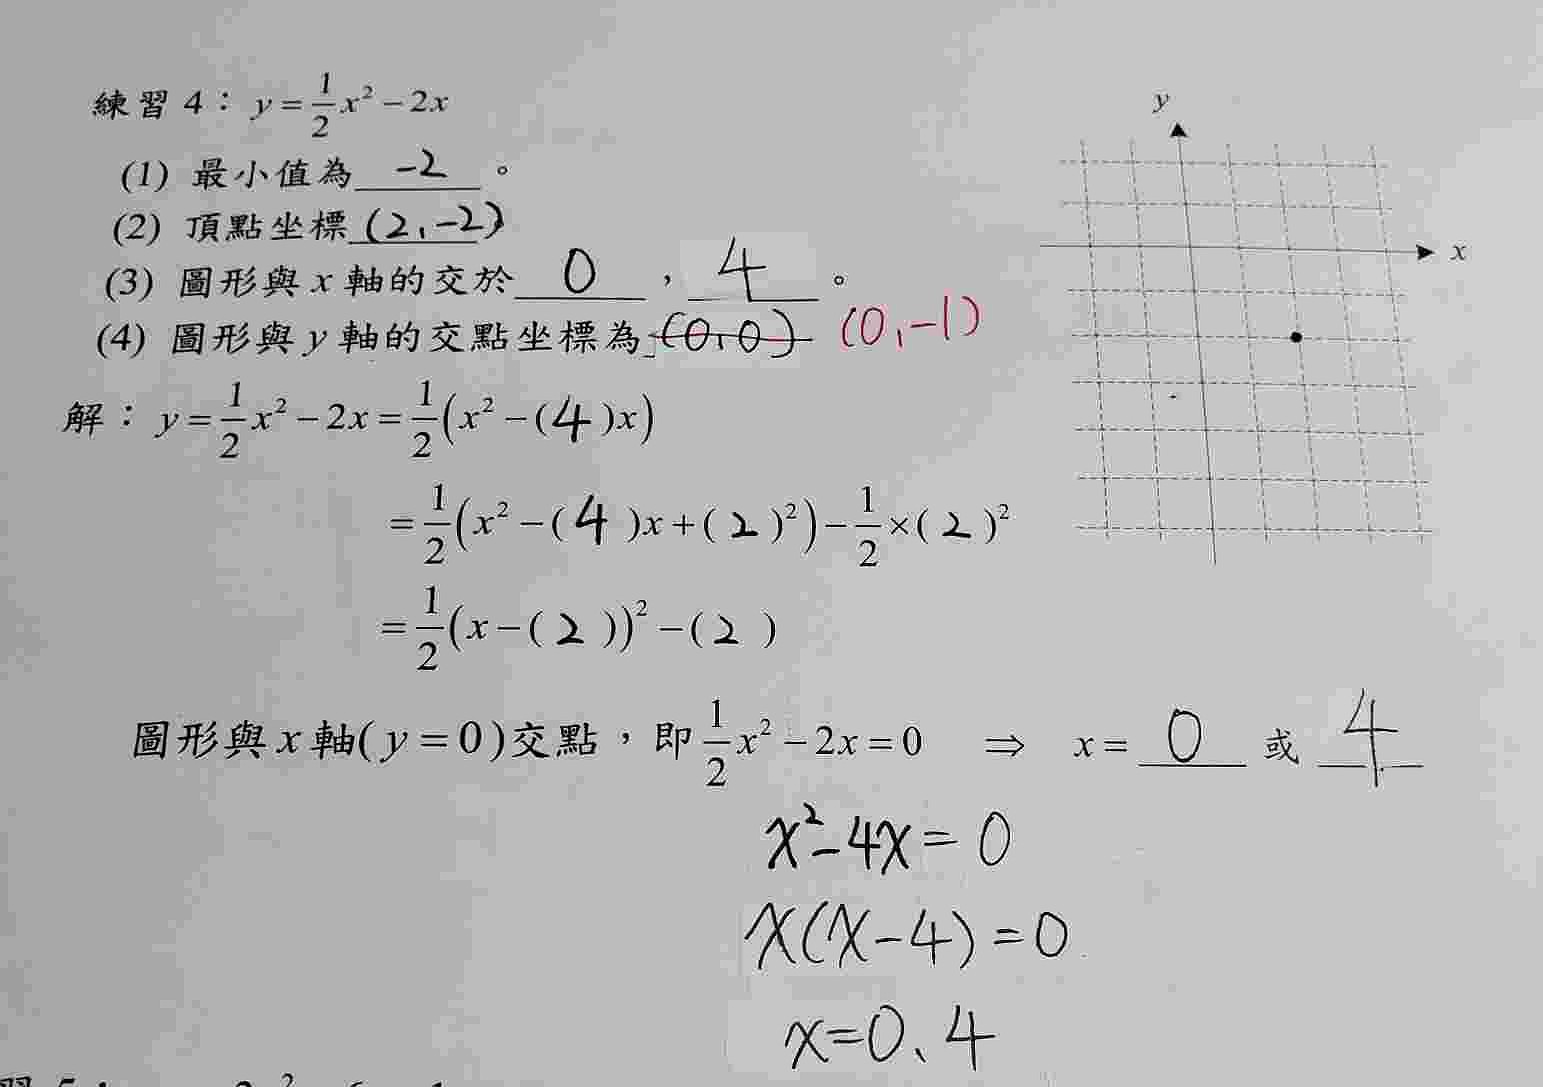 練習 4：y = \frac{1}{2}x² − 2x
(1) 最小值為 -2 。
(2) 頂點坐標 (2,-2)
(3) 圖形與 x 軸的交於 0 ， 4 。
(4) 圖形與 y 軸的交點坐標為 (0,0) (0,-1)
解：y = \frac{1}{2}x² − 2x = \frac{1}{2}(x² − (4)x)
= \frac{1}{2}(x² − (4)x + (2)²) − \frac{1}{2} × (2)²
= \frac{1}{2}(x − (2))² − (2)
圖形與 x 軸( y = 0 )交點，即 \frac{1}{2}x² − 2x = 0 ⇒ x = 0 或 4
x² - 4x = 0
x(x-4) = 0
x=0、4
y
x